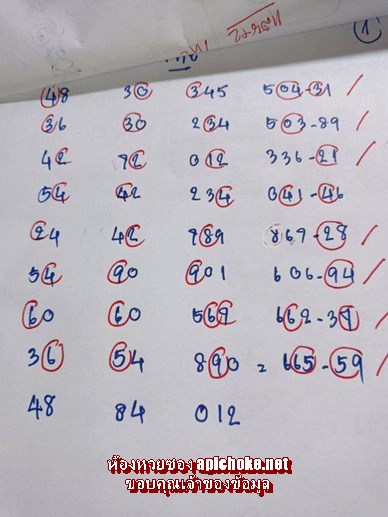 1
48 30 345 504-31
36 30 234 503-89
42 92 012 336-21
54 42 234 041-46
24 42 789 869-28
54 90 901 606-94
60 60 569 662-39
36 54 890 = 665-59
48 84 012
ห้องหวยซอง apichoke.net
ขอบคุณเจ้าของข้อมูล